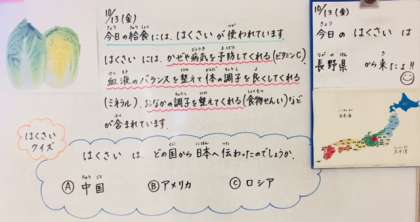 10/13(金)
今日の給食には、はくさいが使われています。
はくさいには、かぜや病気を予防してくれる(ビタミンC)
血液のバランスを整えて体の調子を良くしてくれる
(ミネラル)、おなかの調子を整えてくれる(食物せんい)など
が含まれています。
はくさい
クイズ
はくさいは、どの国から日本へ伝わったのでしょうか。
Ⓐ 中国 Ⓑ アメリカ Ⓒ ロシア
10/13(金)
今日のはくさいは
長野県から来たよ!!